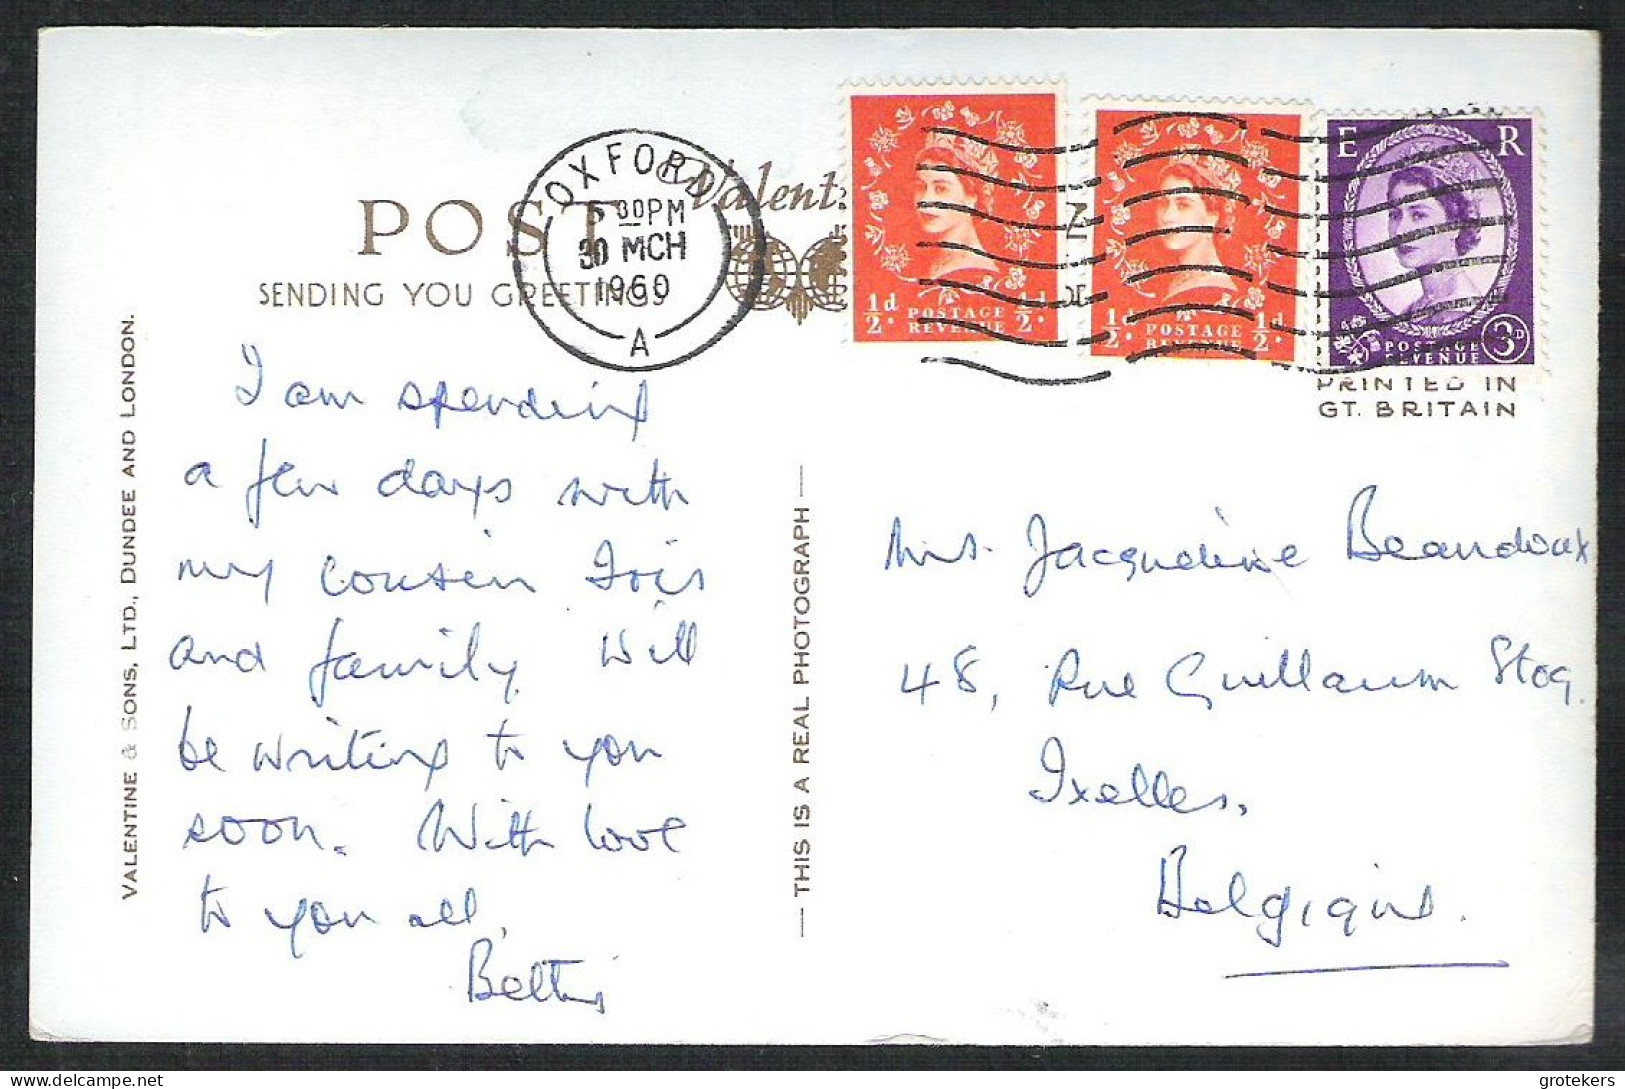 OXFORD
6 30PM
30 MCH
1960
A
Valent
POST
SENDING YOU GREETINGS
½d POSTAGE REVENUE ½d
½d POSTAGE REVENUE ½d
E R
POSTAGE REVENUE 3D
PRINTED IN
GT. BRITAIN
VALENTINE & SONS, LTD., DUNDEE AND LONDON.
I am spending
a few days with
my cousin Iris
and family. Will
be writing to you
soon. With love
to you all,
— THIS IS A REAL PHOTOGRAPH —
Jacqueline Beaudoux
48, Rue Guillaum Stoq.
Ixelles.
Belgique.
grotekers